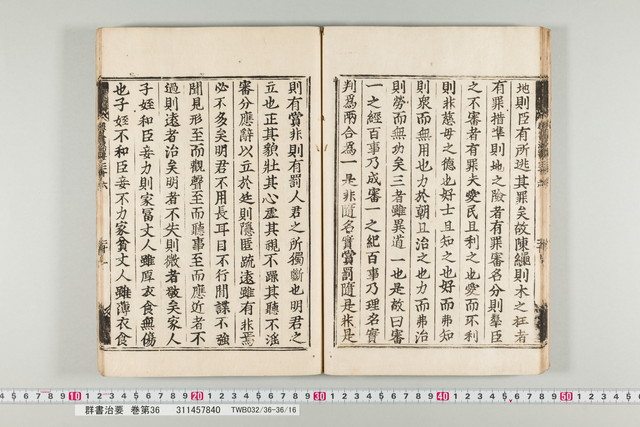 地則臣有所逃其罪矣故陳繩則木之枉者
有罪措準則地之險者有罪審名分則羣臣
之不審者有罪夫愛民且利之也愛而不利
則非慈母之德也好士且知之也好而弗知
則衆而無用也力於朝且治之也力而弗治
則勞而無功矣三者雖異道一也是故曰審
一之經百事乃成審一之紀百事乃理名實
判爲兩合爲一是非隨名實賞罰隨是非是
則有賞非則有罰人君之所獨斷也明君之
立也正其貌壯其心虛其視不躁其聽不淫
審分應辭以立於廷則隱匿疏遠雖有非焉
必不多矣明君不用長耳目不行間諜不強
聞見形至而觀聲至而聽事至而應近者不
過則遠者治矣明者不失則微者敬矣家人
子姪和臣妾力則家富丈人雖厚衣食無傷
也子姪不和臣妾不力家貧丈人雖薄衣食
群書治要 巻第36 311457840 TWB032/36-36/16